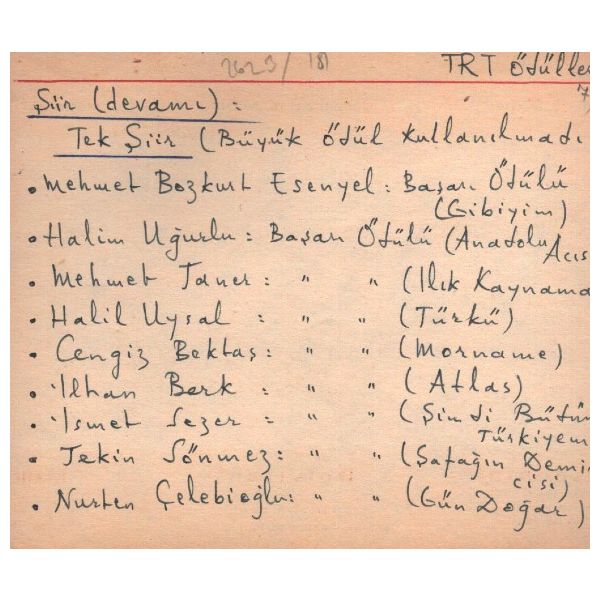 2623/181
TRT Ödülle
7
Şiir (devamı) :
Tek Şiir (Büyük Ödül Kullanılmadı
• Mehmet Bozkurt Esenyel : Başarı Ödülü
(Gibiyim)
• Halim Uğurlu : Başarı Ödülü (Anadolu
Acıs
• Mehmet Taner : " " (Ilık Kaynama
• Halil Uysal : " " (Türkü)
• Cengiz Bektaş : " " (Morname)
• İlhan Berk : " " (Atlas)
• İsmet Sezer : " " (Şimdi Bütün
Türkiyem
• Tekin Sönmez : " " (Şafağın Demi
cisi)
• Nurten Çelebioğlu : " " (Gün Doğar)